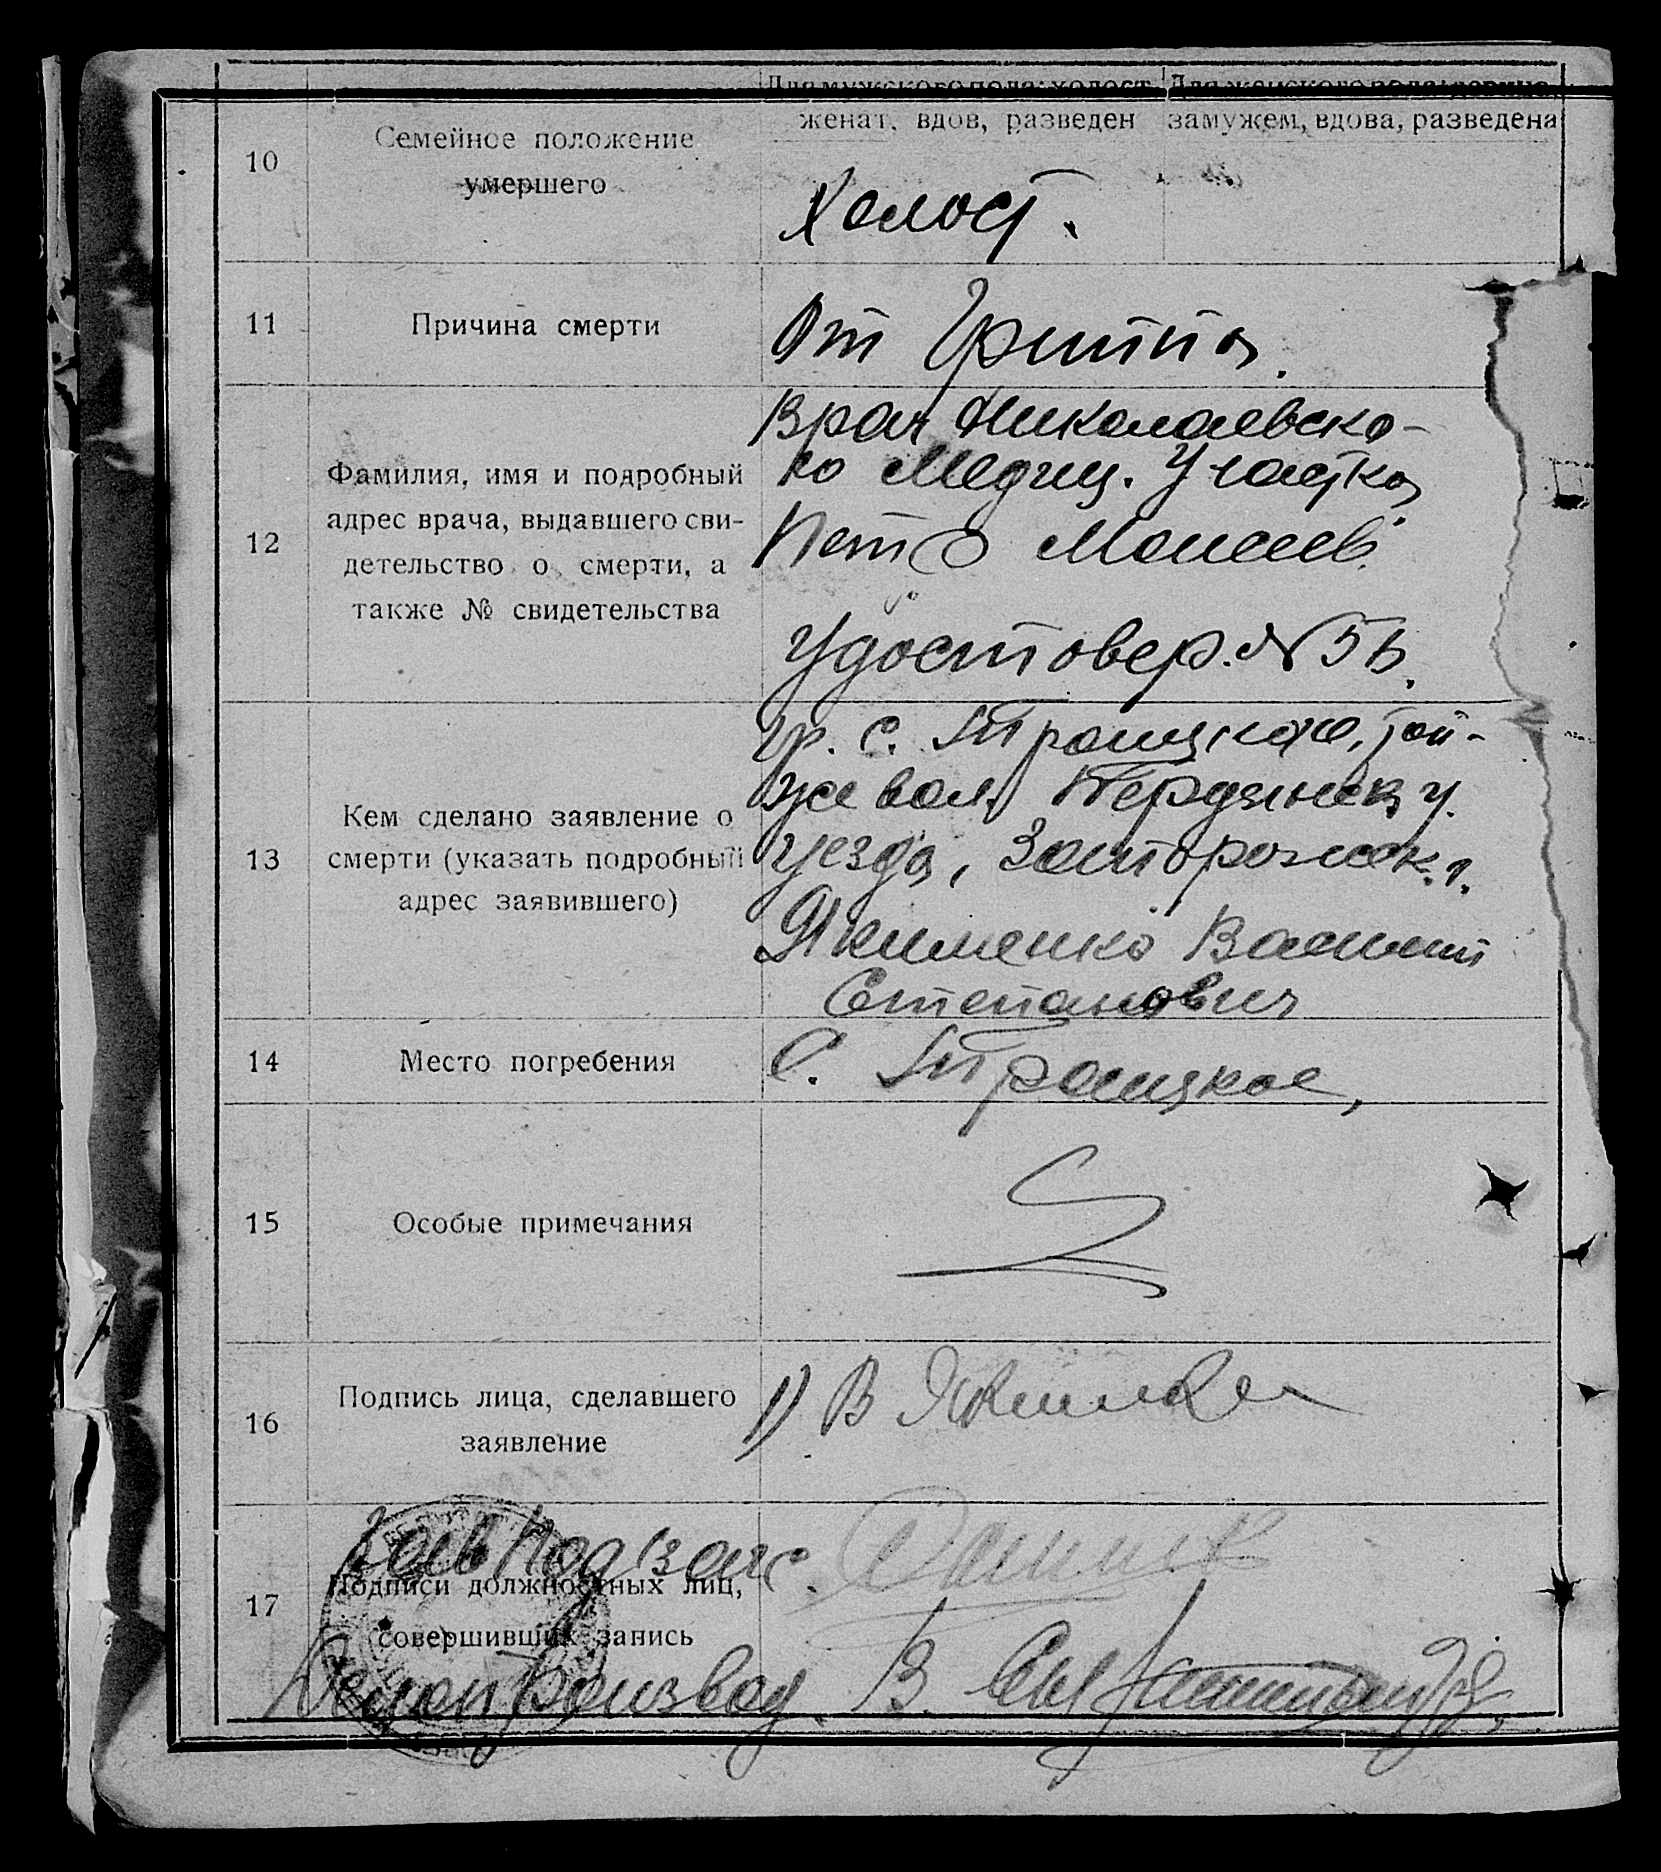 Для мужского пола: холост, Для женского пола: девица,
женат, вдов, разведен замужем, вдова, разведена
10 Семейное положение
умершего
Холост.
11 Причина смерти
От Гриппа.
12 Фамилия, имя и подробный
адрес врача, выдавшего сви-
детельство о смерти, а
также № свидетельства
Врач Николаевско-
го Медиц. Участка
Петр Моисеев
Удостовер. №
13 Кем сделано заявление о
смерти (указать подробный
адрес заявившего)
Гр. с. Троицкое, той-
же вол. Бердянск у.
уезда, Запорожск. г.
Якименко Василий
Степанович
14 Место погребения
С. Троицкое,
15 Особые примечания
16 Подпись лица, сделавшего
заявление
1) В
Зав Подзагс.
17 Подписи должностных лиц,
совершивших запись
Делопроизвод. В.